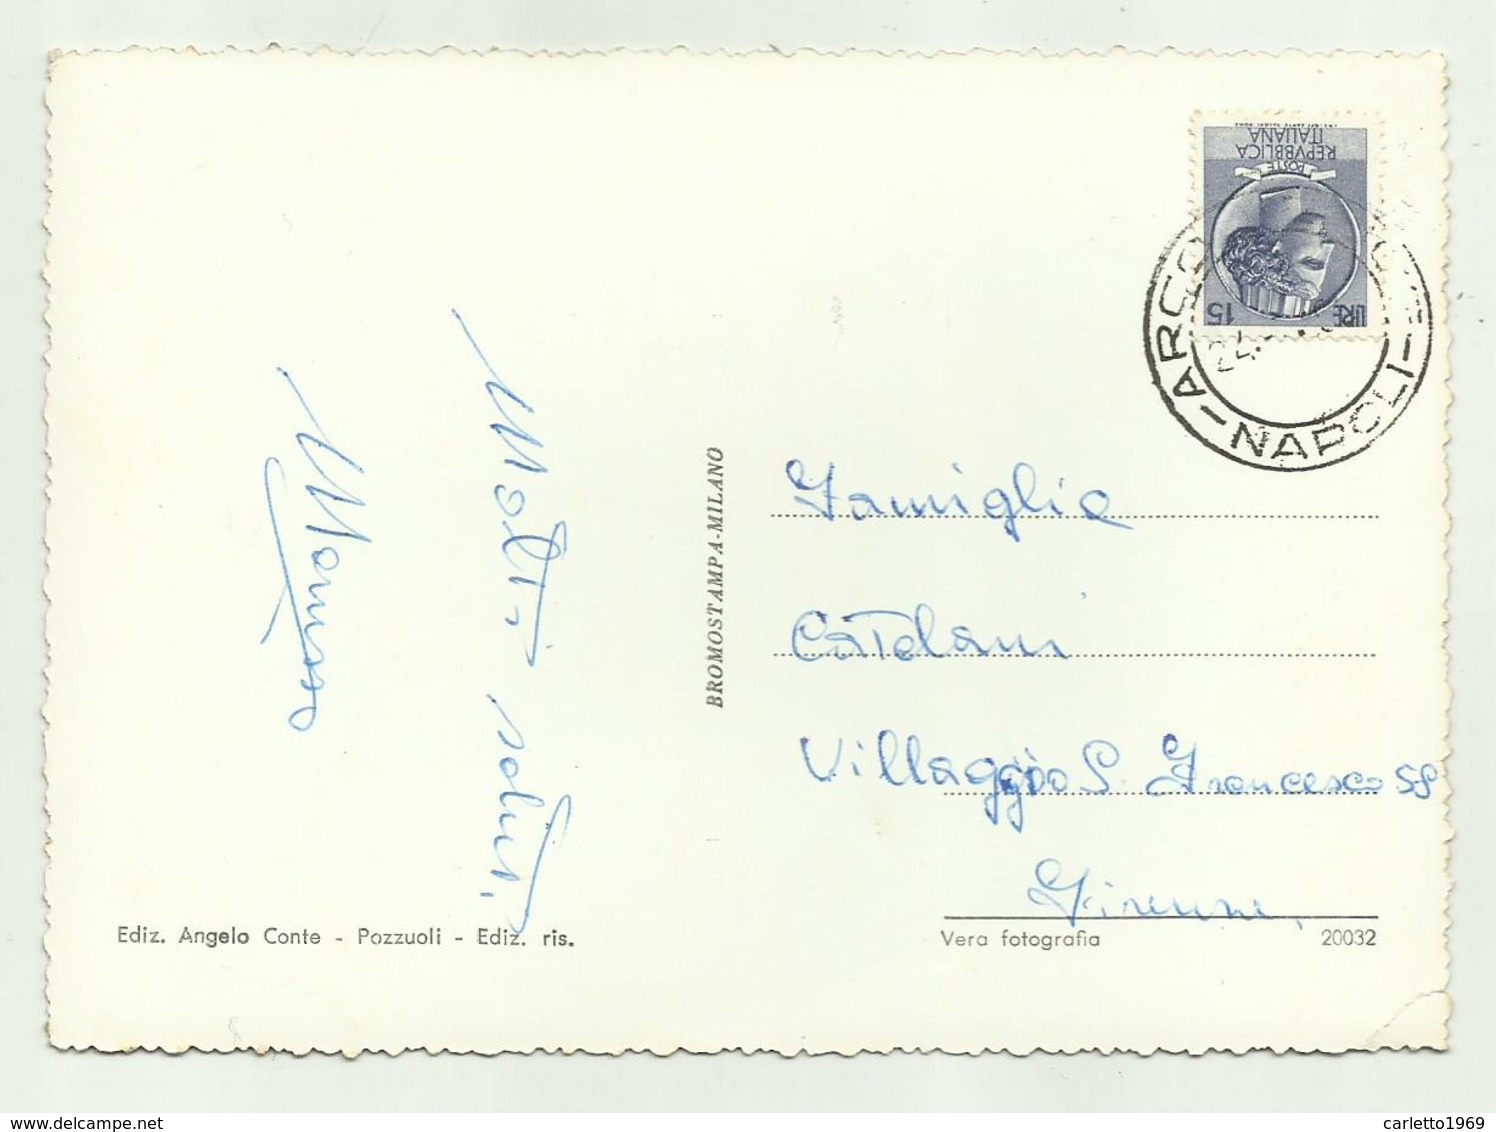 Molti saluti.
BROMOSTAMPA-MILANO
LIRE 15
POSTE
REPVBBLICA
ITALIANA
NAPOLI
Famiglia
Catelani
Villaggio S. Francesco 58
Firenze,
Ediz. Angelo Conte - Pozzuoli - Ediz. ris.
Vera fotografia 20032
www.delcampe.net
carletto1969